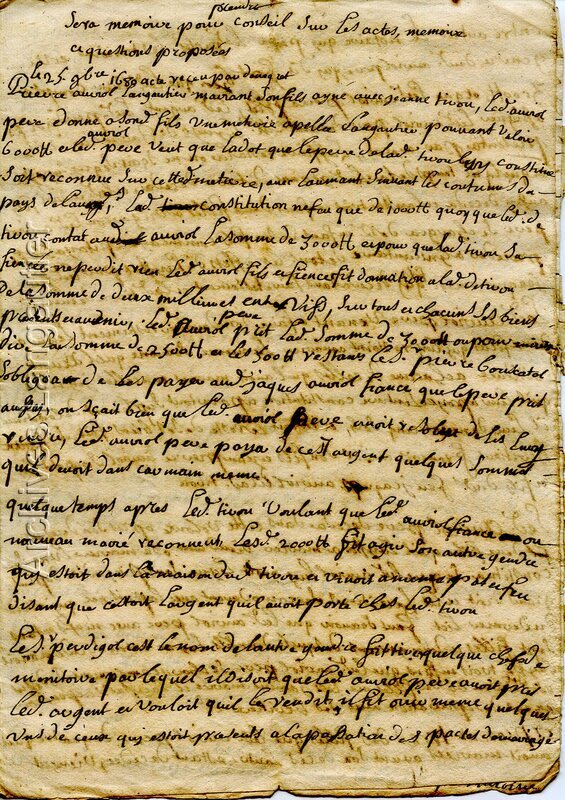 Sera memoire pour prendre conseil sur les actes, memoire
et questions proposées
Le 25 9bre 1680 acte receu par
Pierre auriol Laugautier mariant son fils ayné avec jeanne tivou, Led. auriol
pere donne a sond. fils une metairie apellée Laugautier pouvant valoir
6000tt et led. auriol pere veut que la dot que le pere de lad. tivou luy constitue
soit reconnue sur cette d. metairie, avec l'aumant suivant les coutumes du
pays de Led. constitution ne feu que de 1000tt quoy que led. de
tivou contat aud. auriol la somme de 3000tt et pour que lad. tivou sa
fiencée ne perdit rien Led. auriol fils et fiencé fit donnation a lad. de tivou
De la somme de deux mille livres sur tous et chacuns ses biens
presants et avenir, led. auriol pere prit lad. somme de 3000tt ou pour mieux
dire la somme de 2500tt et les 500tt restants le Sr. pierre
s'obligea de les payer aud. jaques auriol fiancé que le pere prit
aussy, on sçait bien que led. auriol pere avoit de les
Led. auriol pere paya de cest argent quelques sommes
qu'il devoit dans sa main meme
quelque temps apres Led. tivou voulant que led. auriol fiancé ou
nouveau marié reconneut les d. 2000tt fit agir son autre gendre
qui estoit dans la maison dud. tivou et vivoit a meme pot et feu
disant que cestoit l'argent quil avoit porté ches led. tivou
Le Sr. perdigol cest le nom de l'autre gendre fit tirer quelque chefs de
monitoire par lequel il disoit que led. auriol pere avoit pris
led. argent et vouloit quil le rendit, il fit ouir meme quelques
uns de ceux qui estoit presents a la passation des pactes de mariage
Archives Lingwister